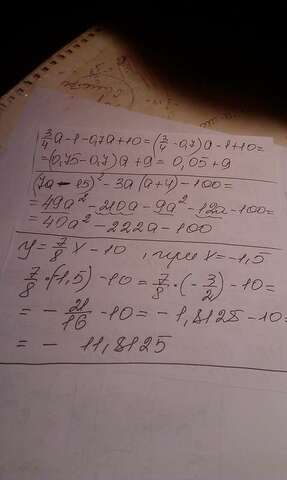 3/4 a - 1 - 0,7a + 10 = (3/4 - 0,7) a - 1 + 10 =
= (0,75 - 0,7) a + 9 = 0,05 + 9
(7a - 15)² - 3a (a + 4) - 100 =
= 49a² - 210a - 9a² - 12a - 100 =
= 40a² - 222a - 100
y = 7/8 x - 10 , при x = -1,5
7/8 · (-1,5) - 10 = 7/8 · (- 3/2) - 10 =
= - 21/16 - 10 = - 1,8125 - 10 =
= - 11,8125